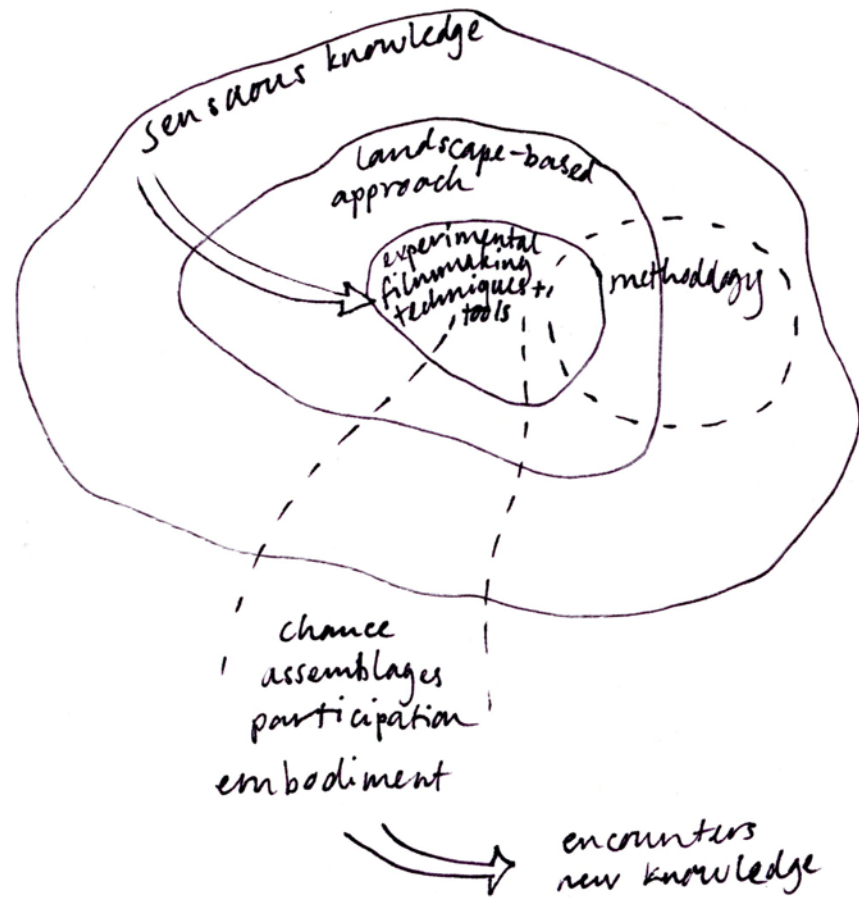 sensuous knowledge
landscape-based
approach
experimental
filmmaking
techniques +
tools
methodology
chance
assemblages
participation
embodiment
encounters
new knowledge